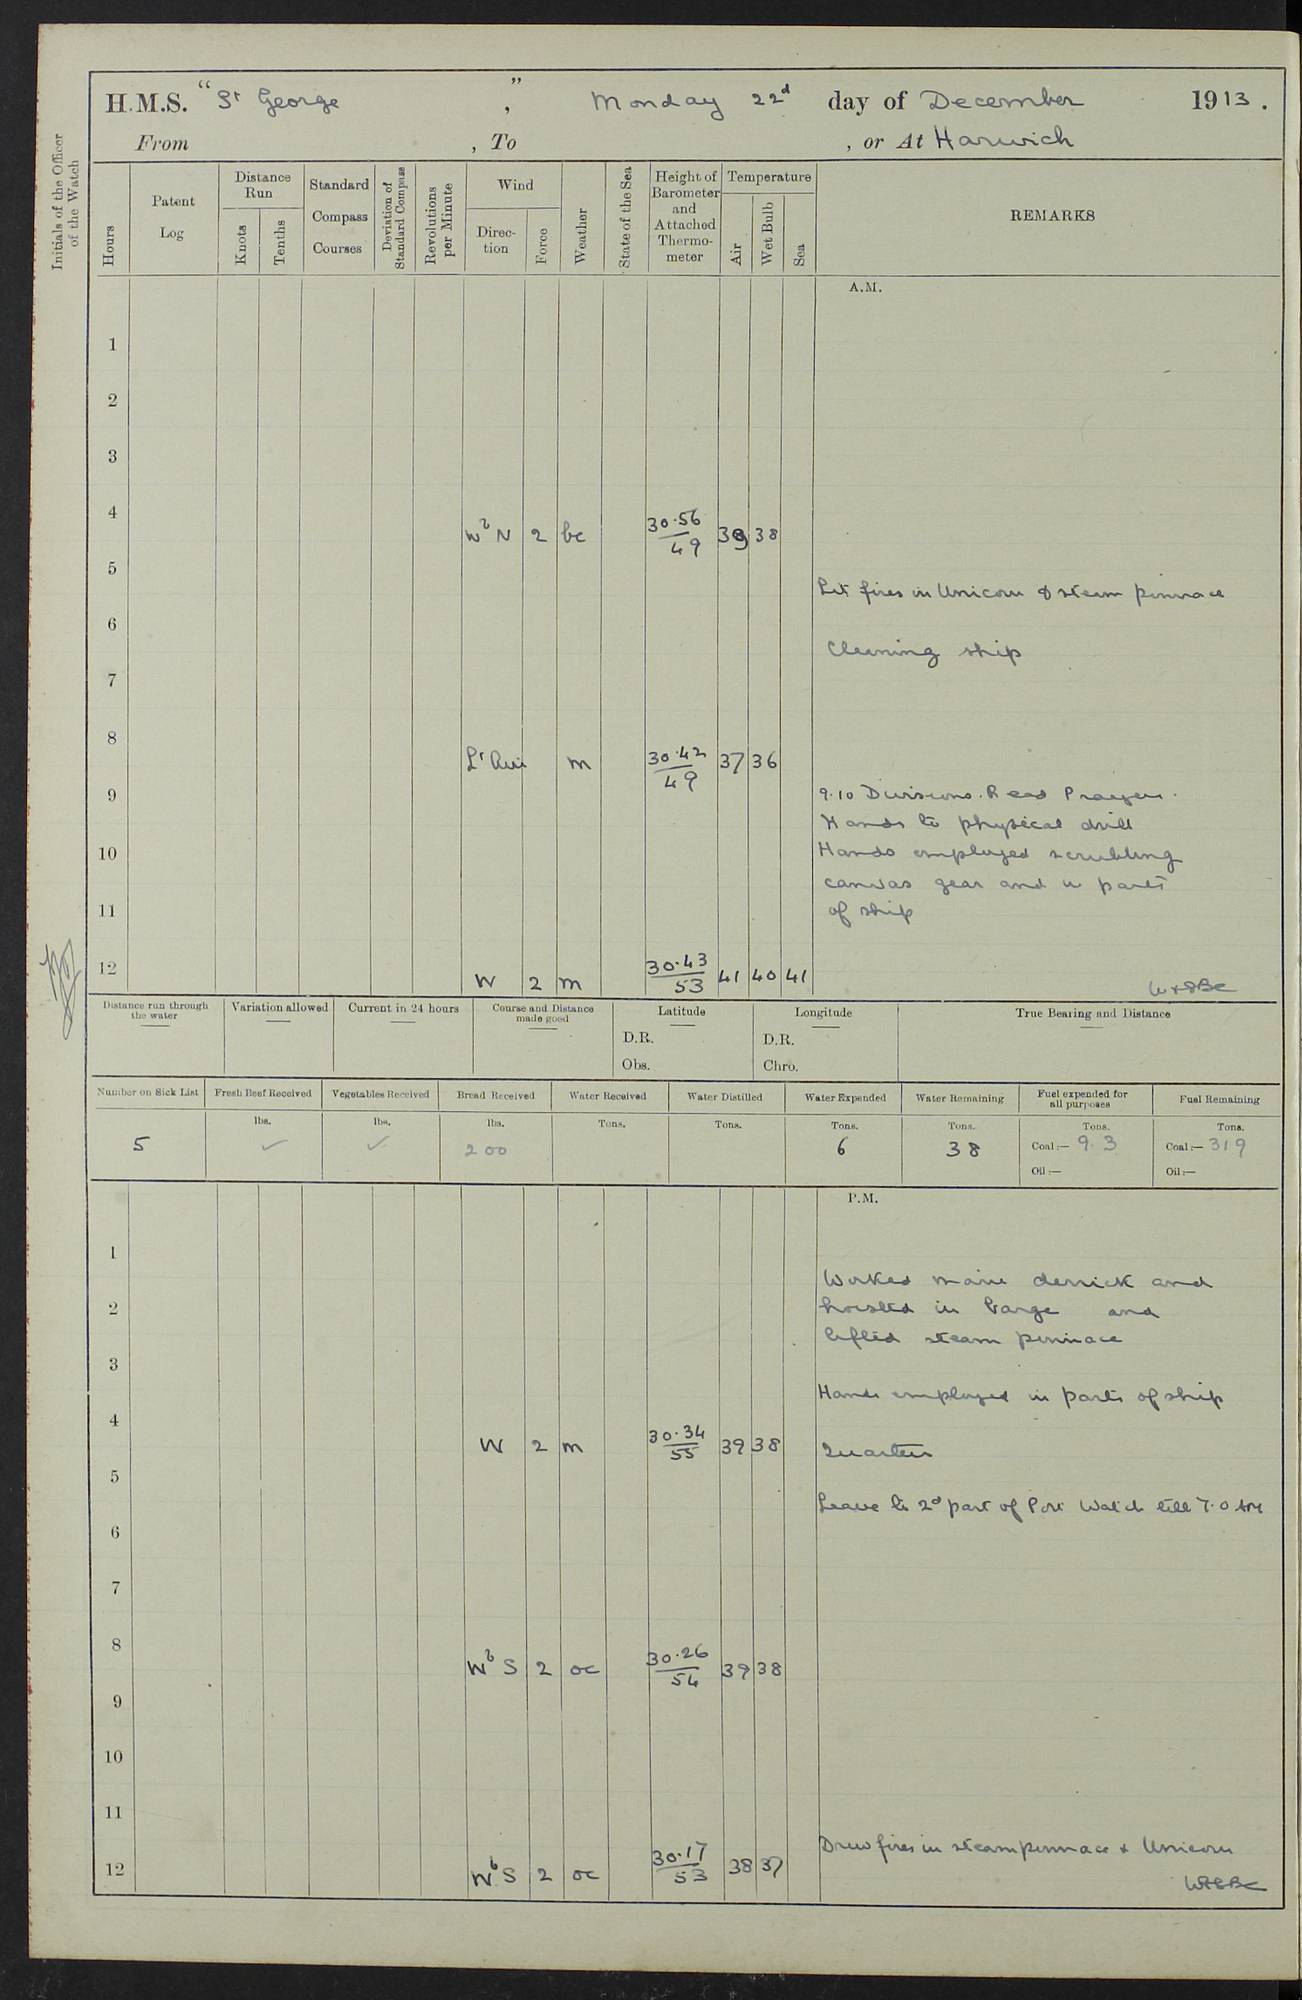 H.M.S. "St George", Monday 22d day of December 1913.
From , To , or At Harwich
Initials of the Officer of the Watch
Hours
Patent Log
Distance Run
Knots
Tenths
Standard Compass Courses
Deviation of Standard Compass
Revolutions per Minute
Wind
Direction
Force
Weather
State of the Sea
Height of Barometer and Attached Thermometer
Temperature
Air
Wet Bulb
Sea
REMARKS
A.M.
1
2
3
4
WbN 2 bc 30.56/49 39 38
5
Lit fires in Unicorn & steam pinnace
6
Cleaning ship
7
8
Lt Airs m 30.42/49 37 36
9
9.10 Divisions. Read Prayers.
Hands to physical drill
10
Hands employed scrubbing
canvas gear and in parts
11
of ship
12
W 2 m 30.43/53 41 40 41
Distance run through the water
Variation allowed
Current in 24 hours
Course and Distance made good
Latitude
D.R.
Obs.
Longitude
D.R.
Chro.
True Bearing and Distance
Number on Sick List
Fresh Beef Received
Vegetables Received
Bread Received
Water Received
Water Distilled
Water Expended
Water Remaining
Fuel expended for all purposes
Fuel Remaining
5
lbs. ✓
lbs. ✓
lbs. 200
Tons.
Tons.
Tons. 6
Tons. 38
Tons. Coal:— 9.3
Oil:—
Tons. Coal:— 319
Oil:—
P.M.
1
Worked main derrick and
2
hoisted in barge and
lifted steam pinnace
3
Hands employed in parts of ship
4
W 2 m 30.34/55 39 38
Quarters
5
Leave to 2d part of Port Watch till 7.0 AM
6
7
8
WbS 2 oc 30.26/54 39 38
9
10
11
Drew fires in steam pinnace & Unicorn
12
WbS 2 oc 30.17/53 38 37